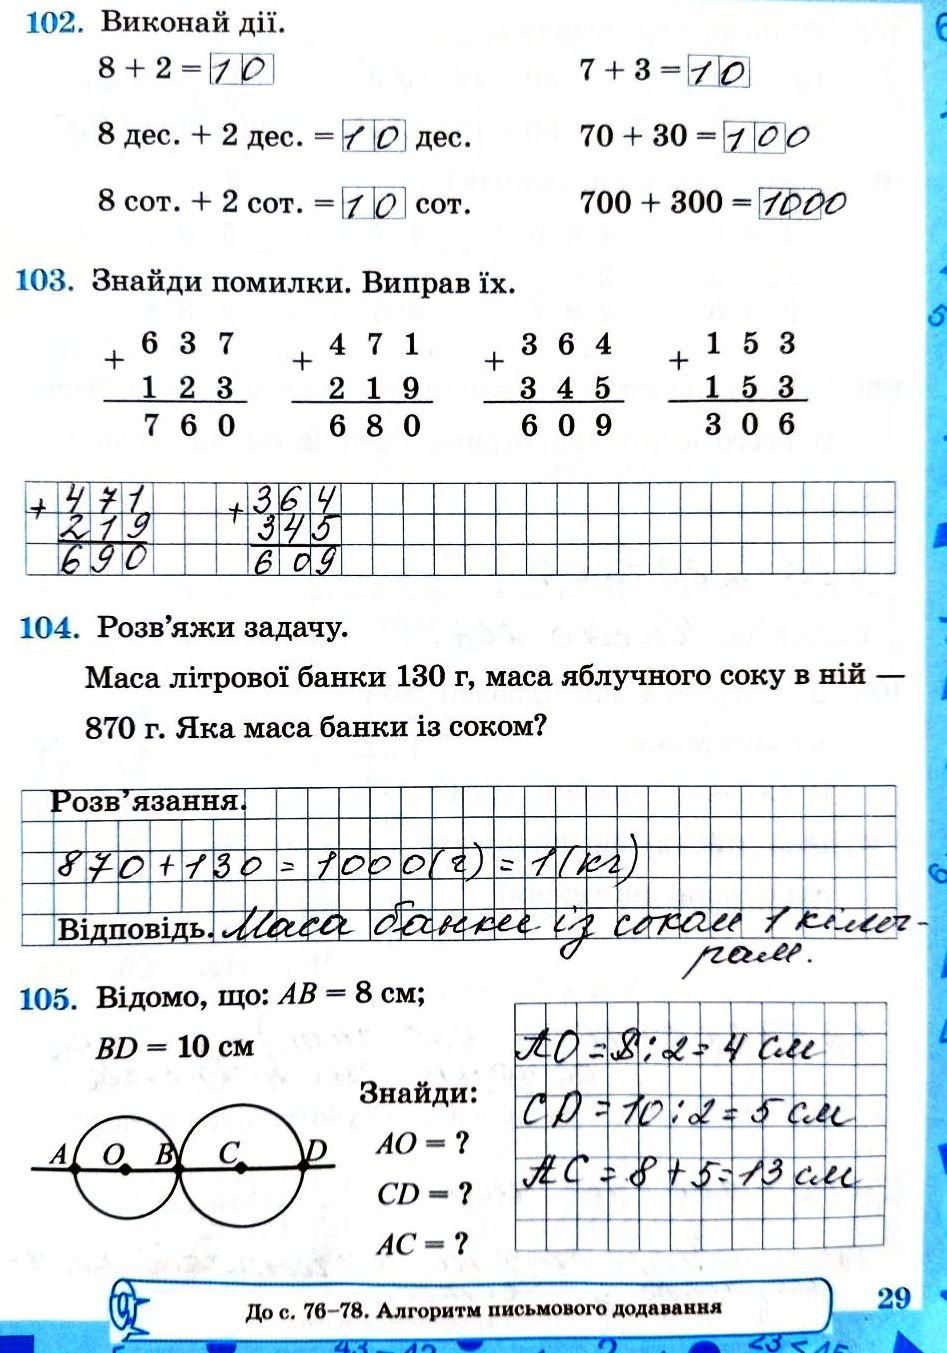 102. Виконай дії.
8 + 2 = 10 7 + 3 = 10
8 дес. + 2 дес. = 10 дес. 70 + 30 = 100
8 сот. + 2 сот. = 10 сот. 700 + 300 = 1000
103. Знайди помилки. Виправ їх.
+ 6 3 7 + 4 7 1 + 3 6 4 + 1 5 3
1 2 3 2 1 9 3 4 5 1 5 3
7 6 0 6 8 0 6 0 9 3 0 6
+ 471 + 364
219 345
690 609
104. Розв'яжи задачу.
Маса літрової банки 130 г, маса яблучного соку в ній —
870 г. Яка маса банки із соком?
Розв'язання.
870 + 130 = 1000 (г) = 1 (кг)
Відповідь. Маса банки із соком 1 кілог-
рам.
105. Відомо, що: AB = 8 см;
BD = 10 см
Знайди:
AO = ?
CD = ?
AC = ?
A O B C D
AO = 8 : 2 = 4 см
CD = 10 : 2 = 5 см
AC = 8 + 5 = 13 см
До с. 76–78. Алгоритм письмового додавання
29